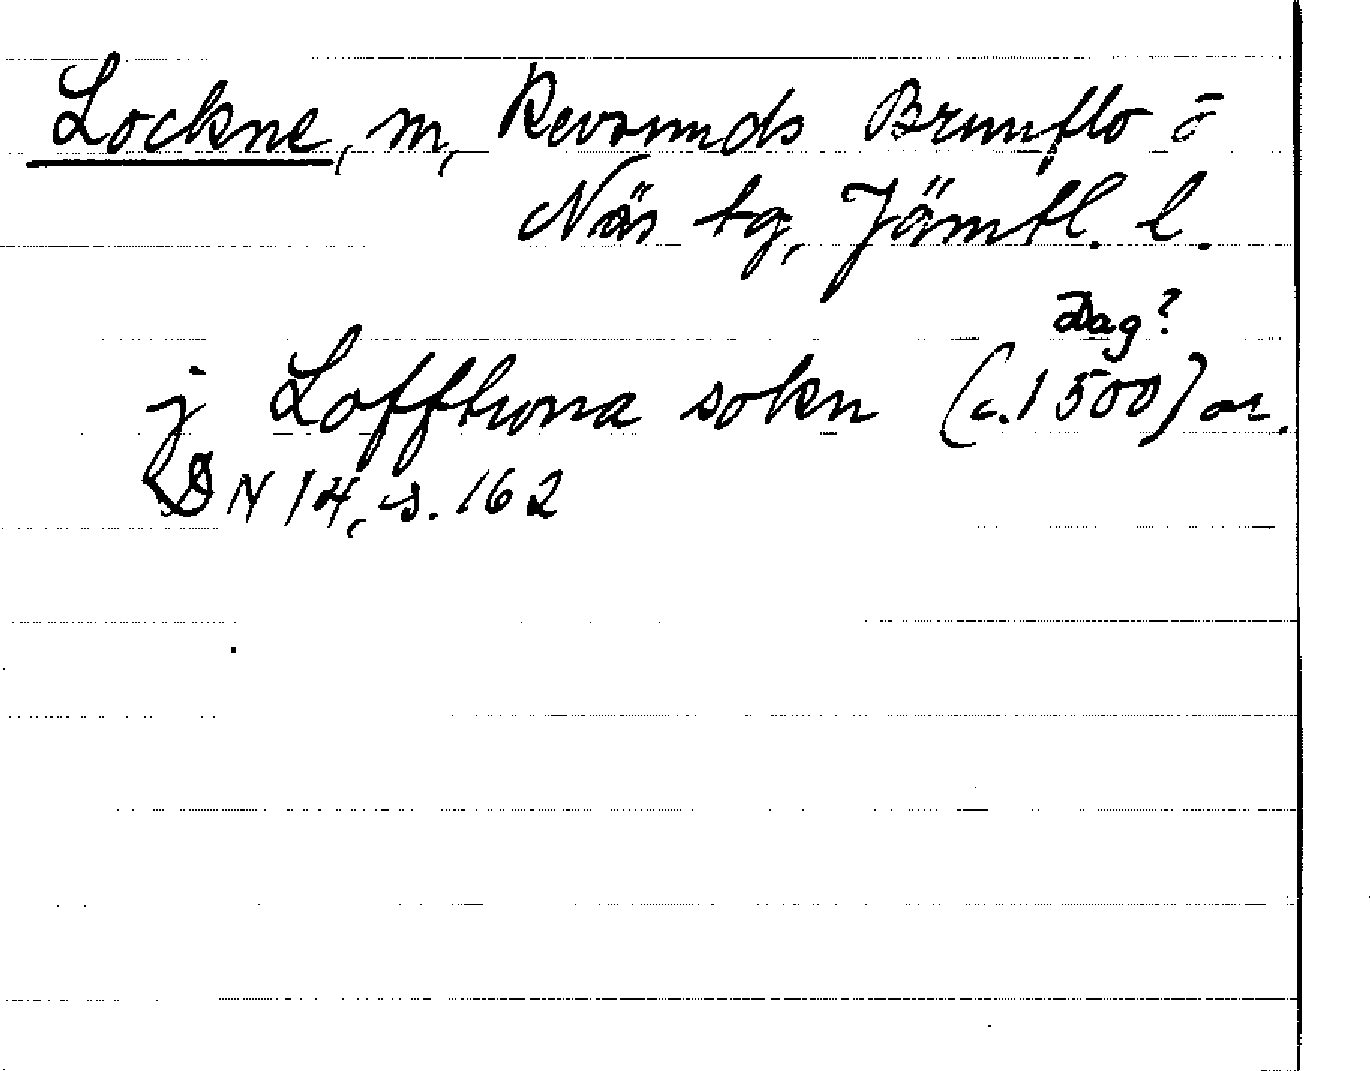 Lockne, sn, Revsunds Brunflo o
Näs tg, Jämtl. l.
Dag?
j Loffthona sokn (c. 1500) or.
DN 14, s. 162